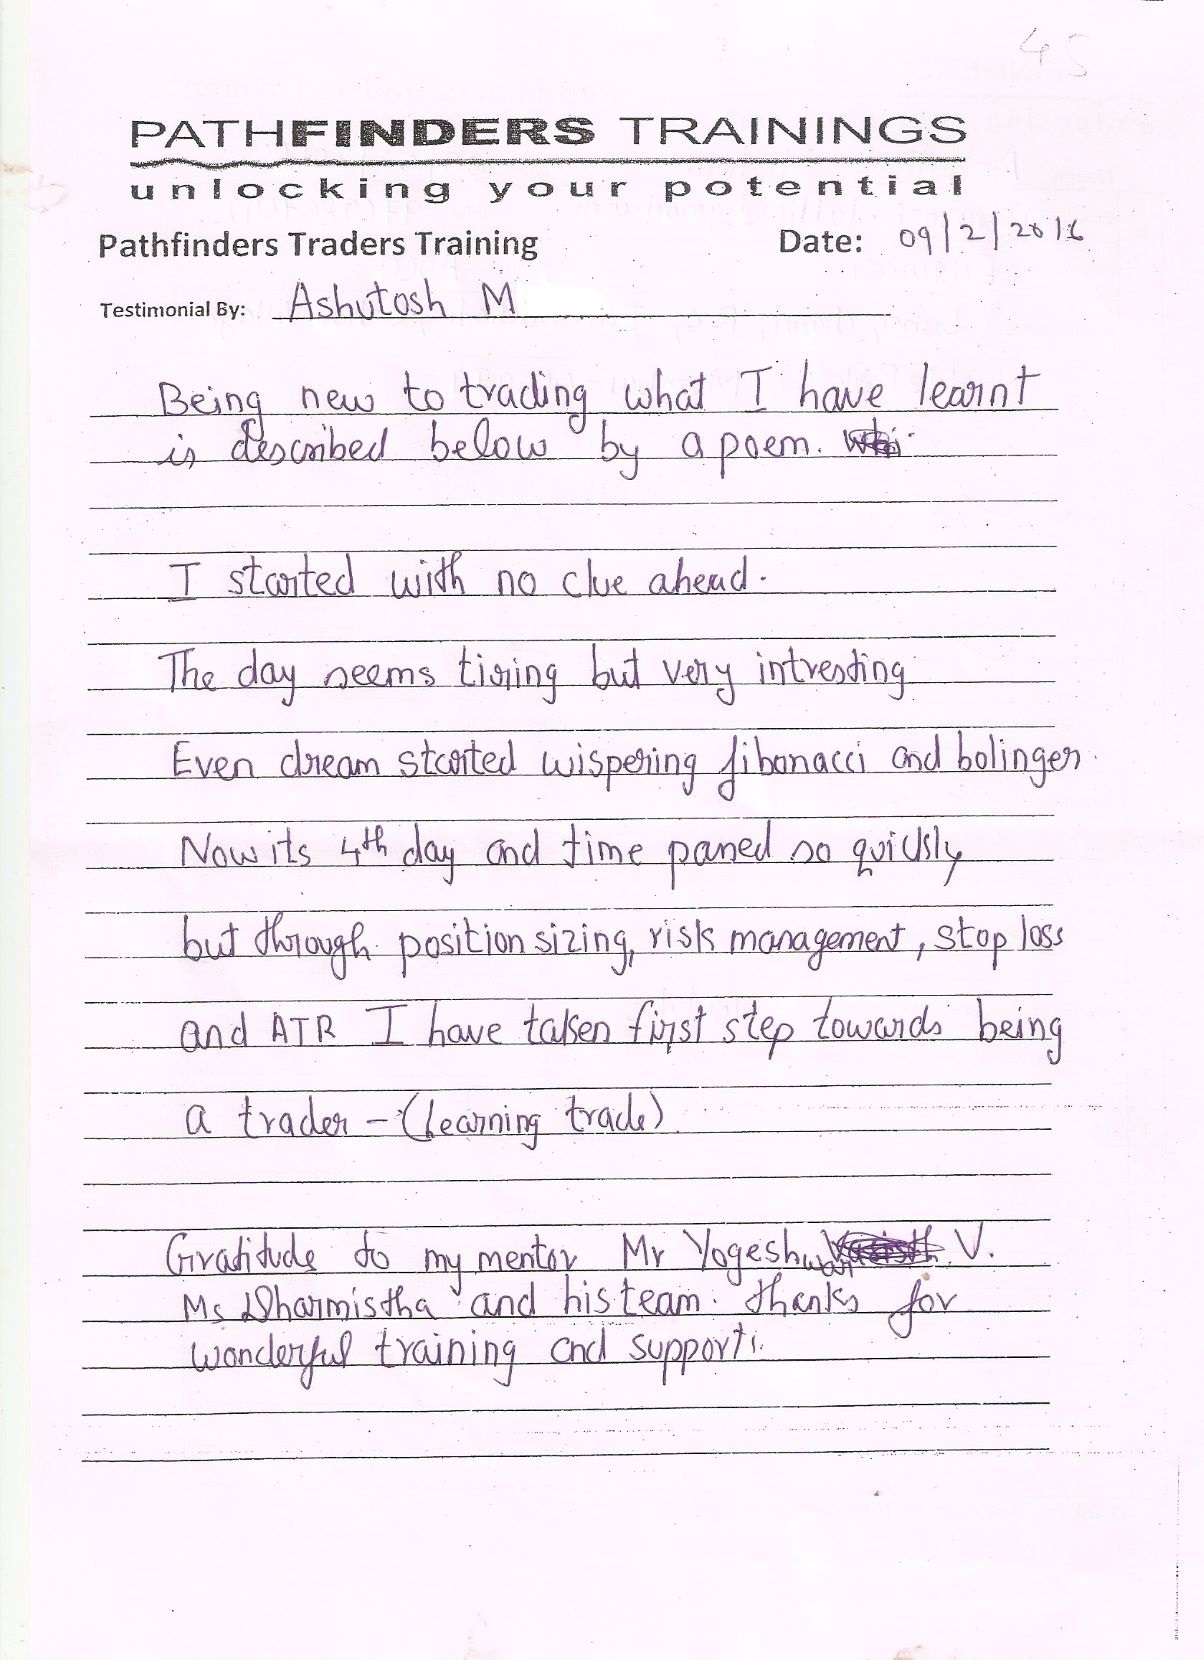 45
PATHFINDERS TRAININGS
unlocking your potential
Pathfinders Traders Training Date: 09/2/2016
Testimonial By: Ashutosh M
Being new to trading what I have learnt
is described below by a poem.
I started with no clue ahead.
The day seems tiring but very intresting
Even dream started wispering fibonacci and bolinger.
Now its 4th day and time passed so quickly
but through position sizing, risk management, stop loss
and ATR I have taken first step towards being
a trader - (learning trade)
Gratitude to my mentor Mr Yogeshwar V.
Ms Dharmistha and his team. thanks for
wonderful training and support.